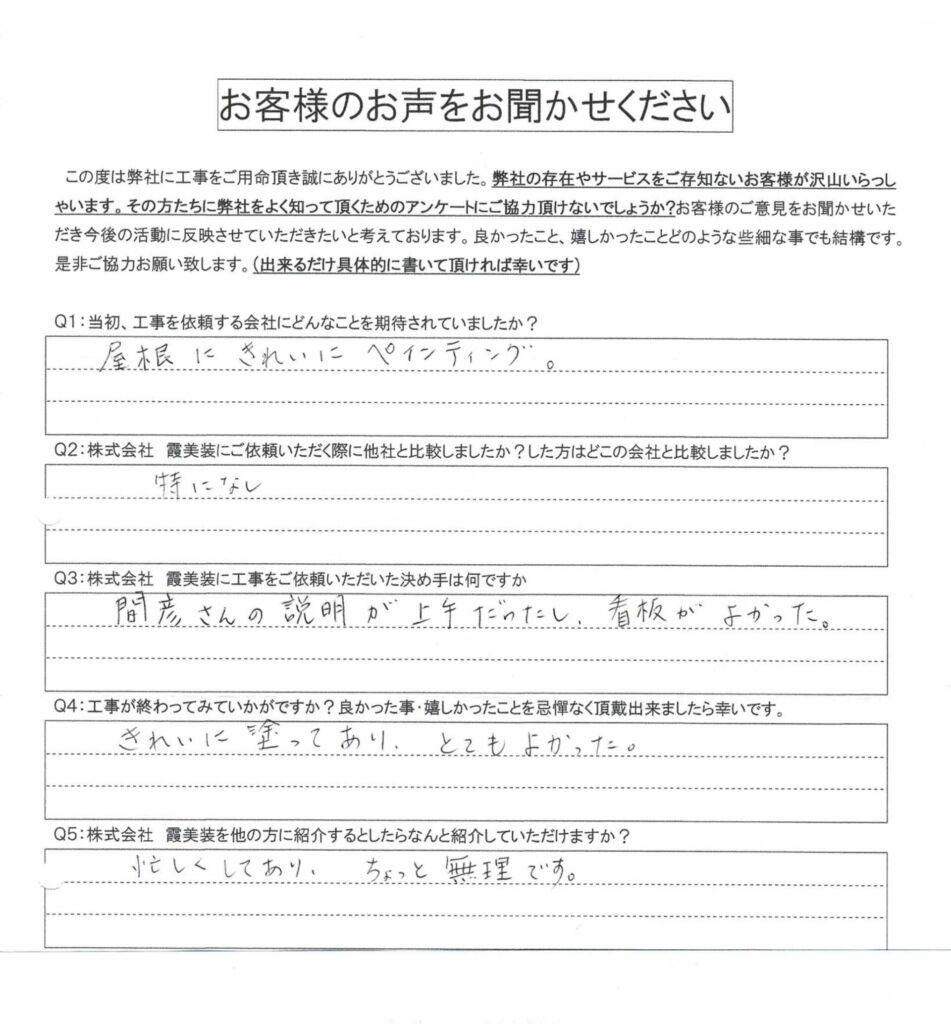 お客様のお声をお聞かせください
この度は弊社に工事をご用命頂き誠にありがとうございました。弊社の存在やサービスをご存知ないお客様が沢山いらっし
ゃいます。その方たちに弊社をよく知って頂くためのアンケートにご協力頂けないでしょうか?お客様のご意見をお聞かせいた
だき今後の活動に反映させていただきたいと考えております。良かったこと、嬉しかったことどのような些細な事でも結構です。
是非ご協力お願い致します。(出来るだけ具体的に書いて頂ければ幸いです)
Q1:当初、工事を依頼する会社にどんなことを期待されていましたか?
屋根にきれいにペインティング。
Q2:株式会社 霞美装にご依頼いただく際に他社と比較しましたか?した方はどこの会社と比較しましたか?
特になし
Q3:株式会社 霞美装に工事をご依頼いただいた決め手は何ですか
間彦さんの説明が上手だったし、看板がよかった。
Q4:工事が終わってみていかがですか?良かった事・嬉しかったことを忌憚なく頂戴出来ましたら幸いです。
きれいに塗ってあり、とてもよかった。
Q5:株式会社 霞美装を他の方に紹介するとしたらなんと紹介していただけますか?
忙しくしてあり、ちょっと無理です。